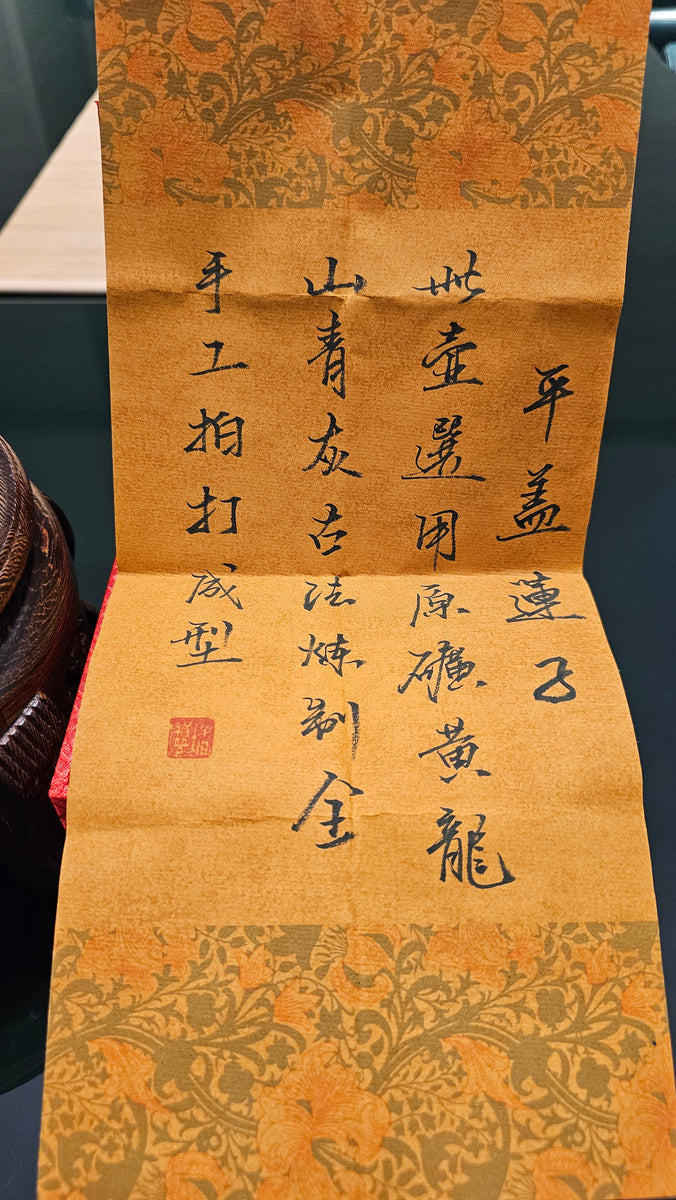 平盖蓮子
此壺選用原礦黃龍
山青灰古法煉制全
手工拍打成型